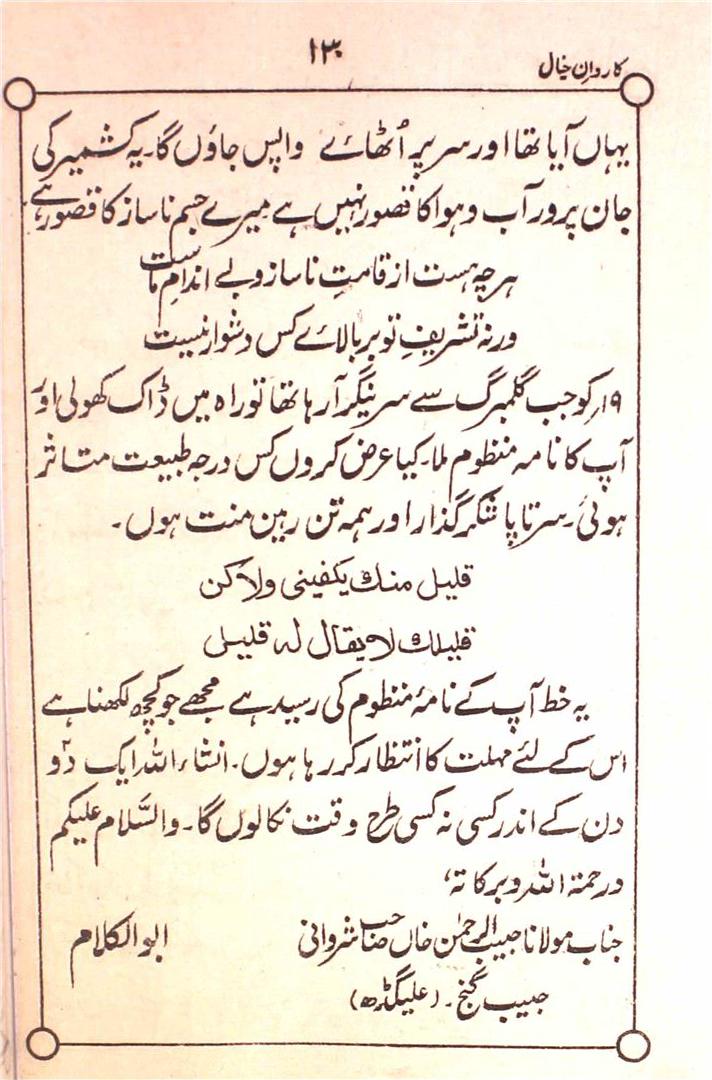 کاروانِ خیال
۱۳۰
یہاں آیا تھا اور سر پر اُٹھائے واپس جاؤں گا۔ یہ کشمیر کی
جان پرور آب و ہوا کا قصور نہیں ہے میرے جسم ناساز کا قصور ہے
ہرچہ ہست از قامتِ ناساز و بے اندامِ ماست
ورنہ تشریفِ تو بر بالائے کس دشوار نیست
۱۹؍ کو جب گلمرگ سے سرینگر آرہا تھا تو راہ میں ڈاک کھولی اور
آپ کا نامہ منظوم ملا۔ کیا عرض کروں کس درجہ طبیعت متاثر
ہوئی۔ سرتاپا شکر گذار اور ہمہ تن رہینِ منت ہوں۔
قلیل منك یکفینی ولاکن
قلیلك لا یقال لہ قلیل
یہ خط آپ کے نامۂ منظوم کی رسید ہے مجھے جو کچھ لکھنا ہے
اس کے لئے مہلت کا انتظار کر رہا ہوں۔ انشاء اللہ ایک دو
دن کے اندر کسی نہ کسی طرح وقت نکالوں گا۔ والسَّلام علیکم
ورحمۃ اللہ وبرکاتہ،
جناب مولانا حبیب الرحمٰن خاں صاحب شروانی ابوالکلام
حبیب گنج۔ (علیگڈھ)